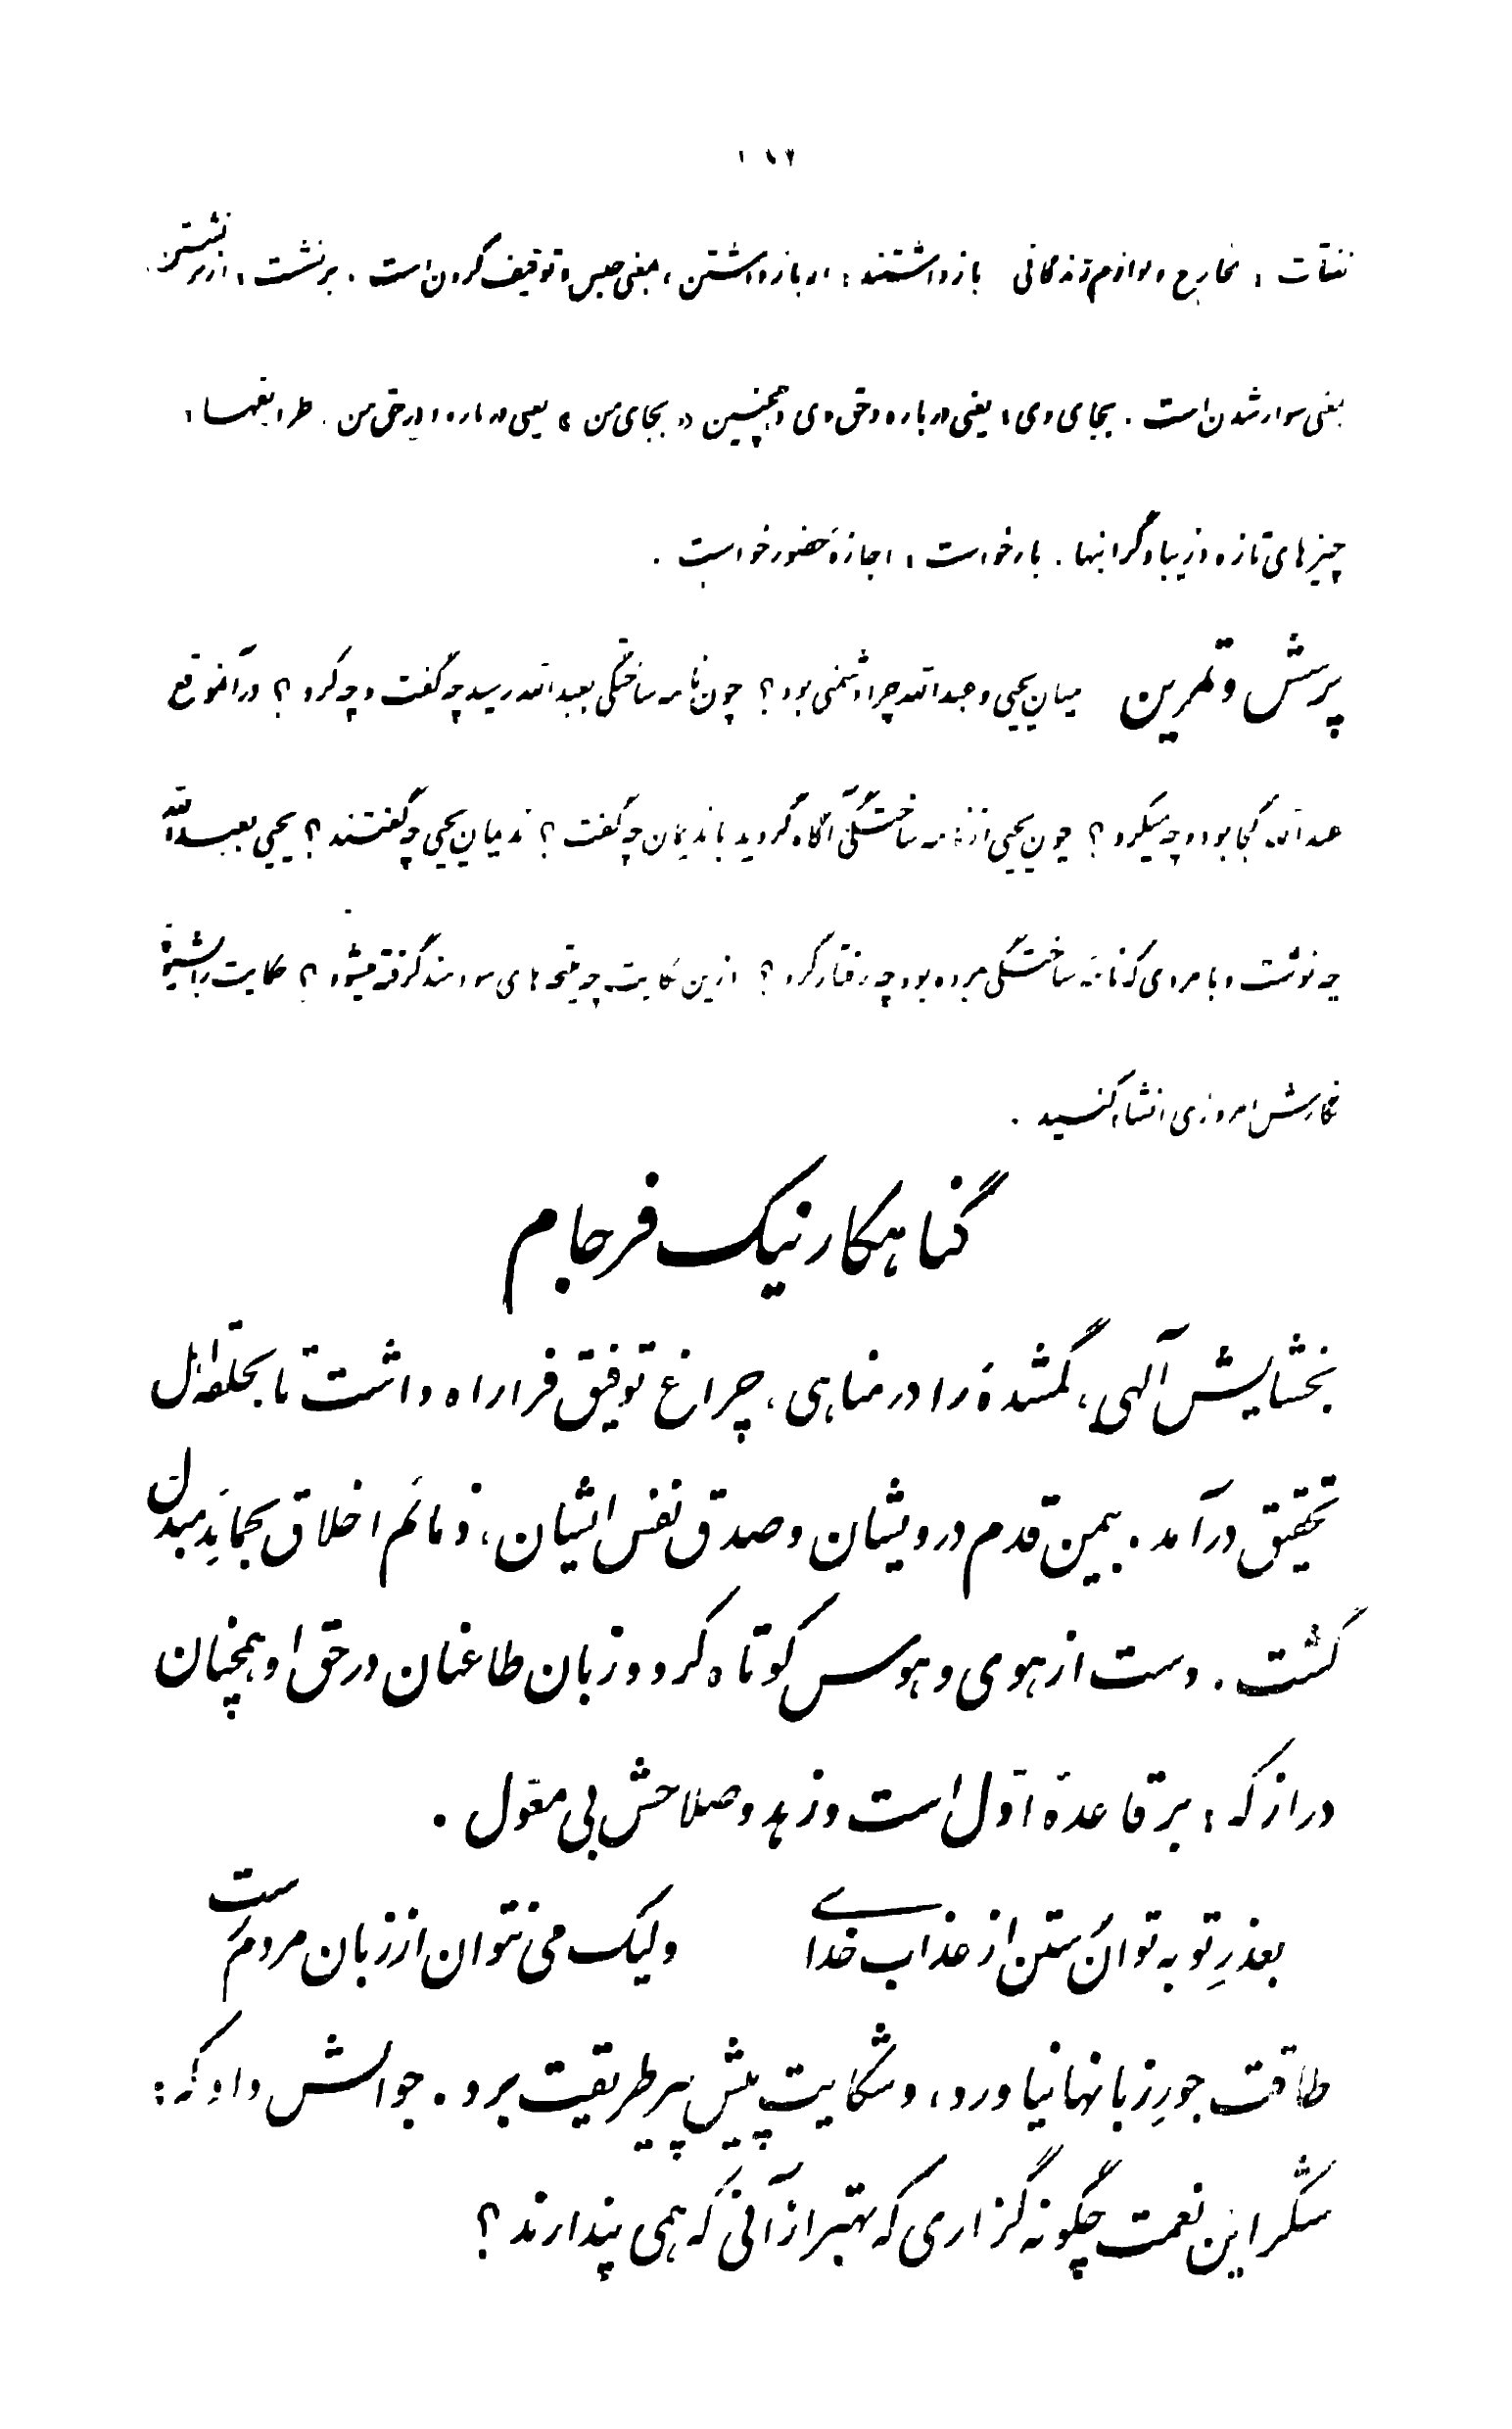 ۱۸۲
نفقات : مخارج و لوازم زندگانی بازداشتند : از بازداشتن ، بمعنی حبس و توقیف کردن است . برنشت : از برنشستن
بمعنی سوار شدن است . بجای وی : یعنی درباره و حق وی و همچنین « بجای من » یعنی درباره و در حق من . طرایفها :
چیزهای تازه و زیبا و گرانبها . بار خواست : اجازهٔ حضور خواست .
پرسش و تمرین میان یحیی و عبدالله چرا دشمنی بود ؟ چون نامه ساختگی بعبدالله رسید چه گفت و چه کرد ؟ در آنموقع
عبدالله کجا بود و چه میکرد ؟ چون یحیی از نامه ساختگی آگاه گردید با ندیمان چه گفت ؟ ندیمان یحیی چه گفتند ؟ یحیی بعبدالله
چه نوشت و با مردی که نامهٔ ساختگی برده بود چه رفتار کرد ؟ ازین حکایت چه نتیجه های سودمند گرفته میشود ؟ حکایت را بشیوهٔ
نگارش امروزی انشاء کنید .
گناهکار نیک فرجام
بخشایش آلهی ، گمشدهٔ را در مناهی ، چراغ توفیق فرا راه داشت تا بحلقهٔ اهل
تحقیق درآمد . بیمن قدم درویشان و صدق نفس ایشان ، ذمائم اخلاق بحمایدِ مبدل
گشت . دست از هوی و هوس کوتاه کرد و زبان طاعنان در حق او همچنان
دراز که : بر قاعدهٔ اوّل است و زهد و صلاحش بی معوّل .
بعذرِ توبه توان رستن از عذاب خدای ولیک می نتوان از زبان مردم رست
طاقت جورِ زبانها نیاورد ، و شکایت پیش پیر طریقت برد . جوابش داد که :
شکر این نعمت چگونه گزاری که بهتر از آنی که همی پندارند ؟